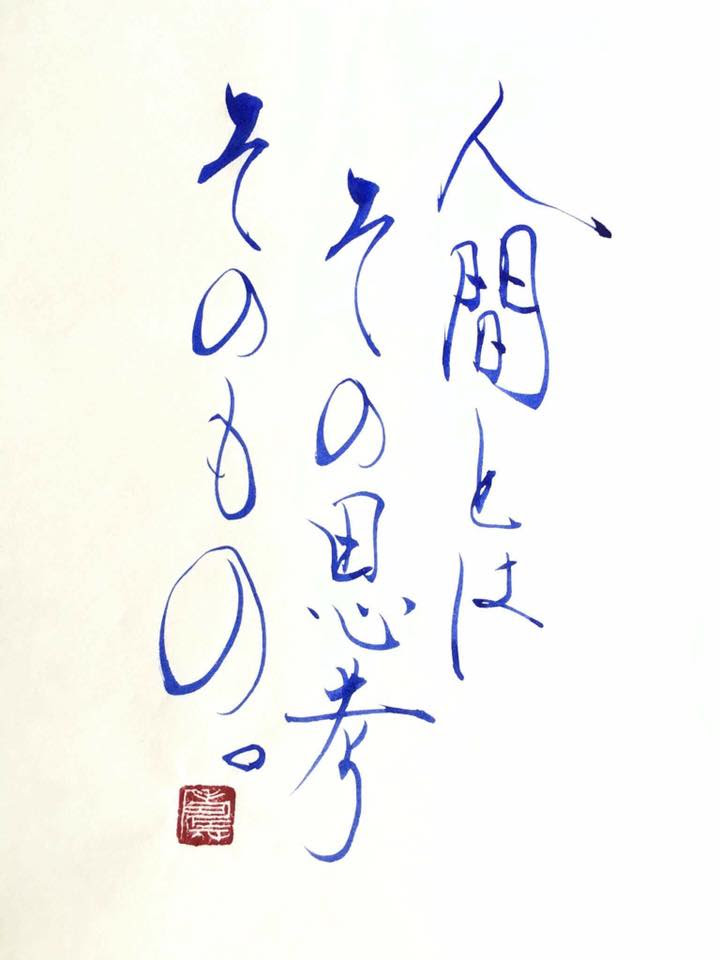 人間とは
その思考
そのもの。